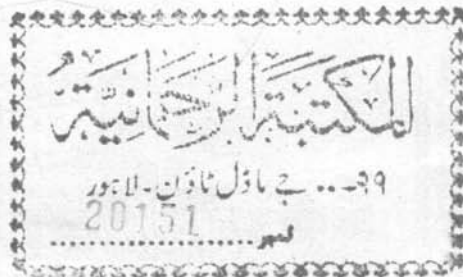 المكتبة الرحمانية
۹۹ـ... جے ماڈل ٹاؤن ۔ لاہور
20151
نمبر....................